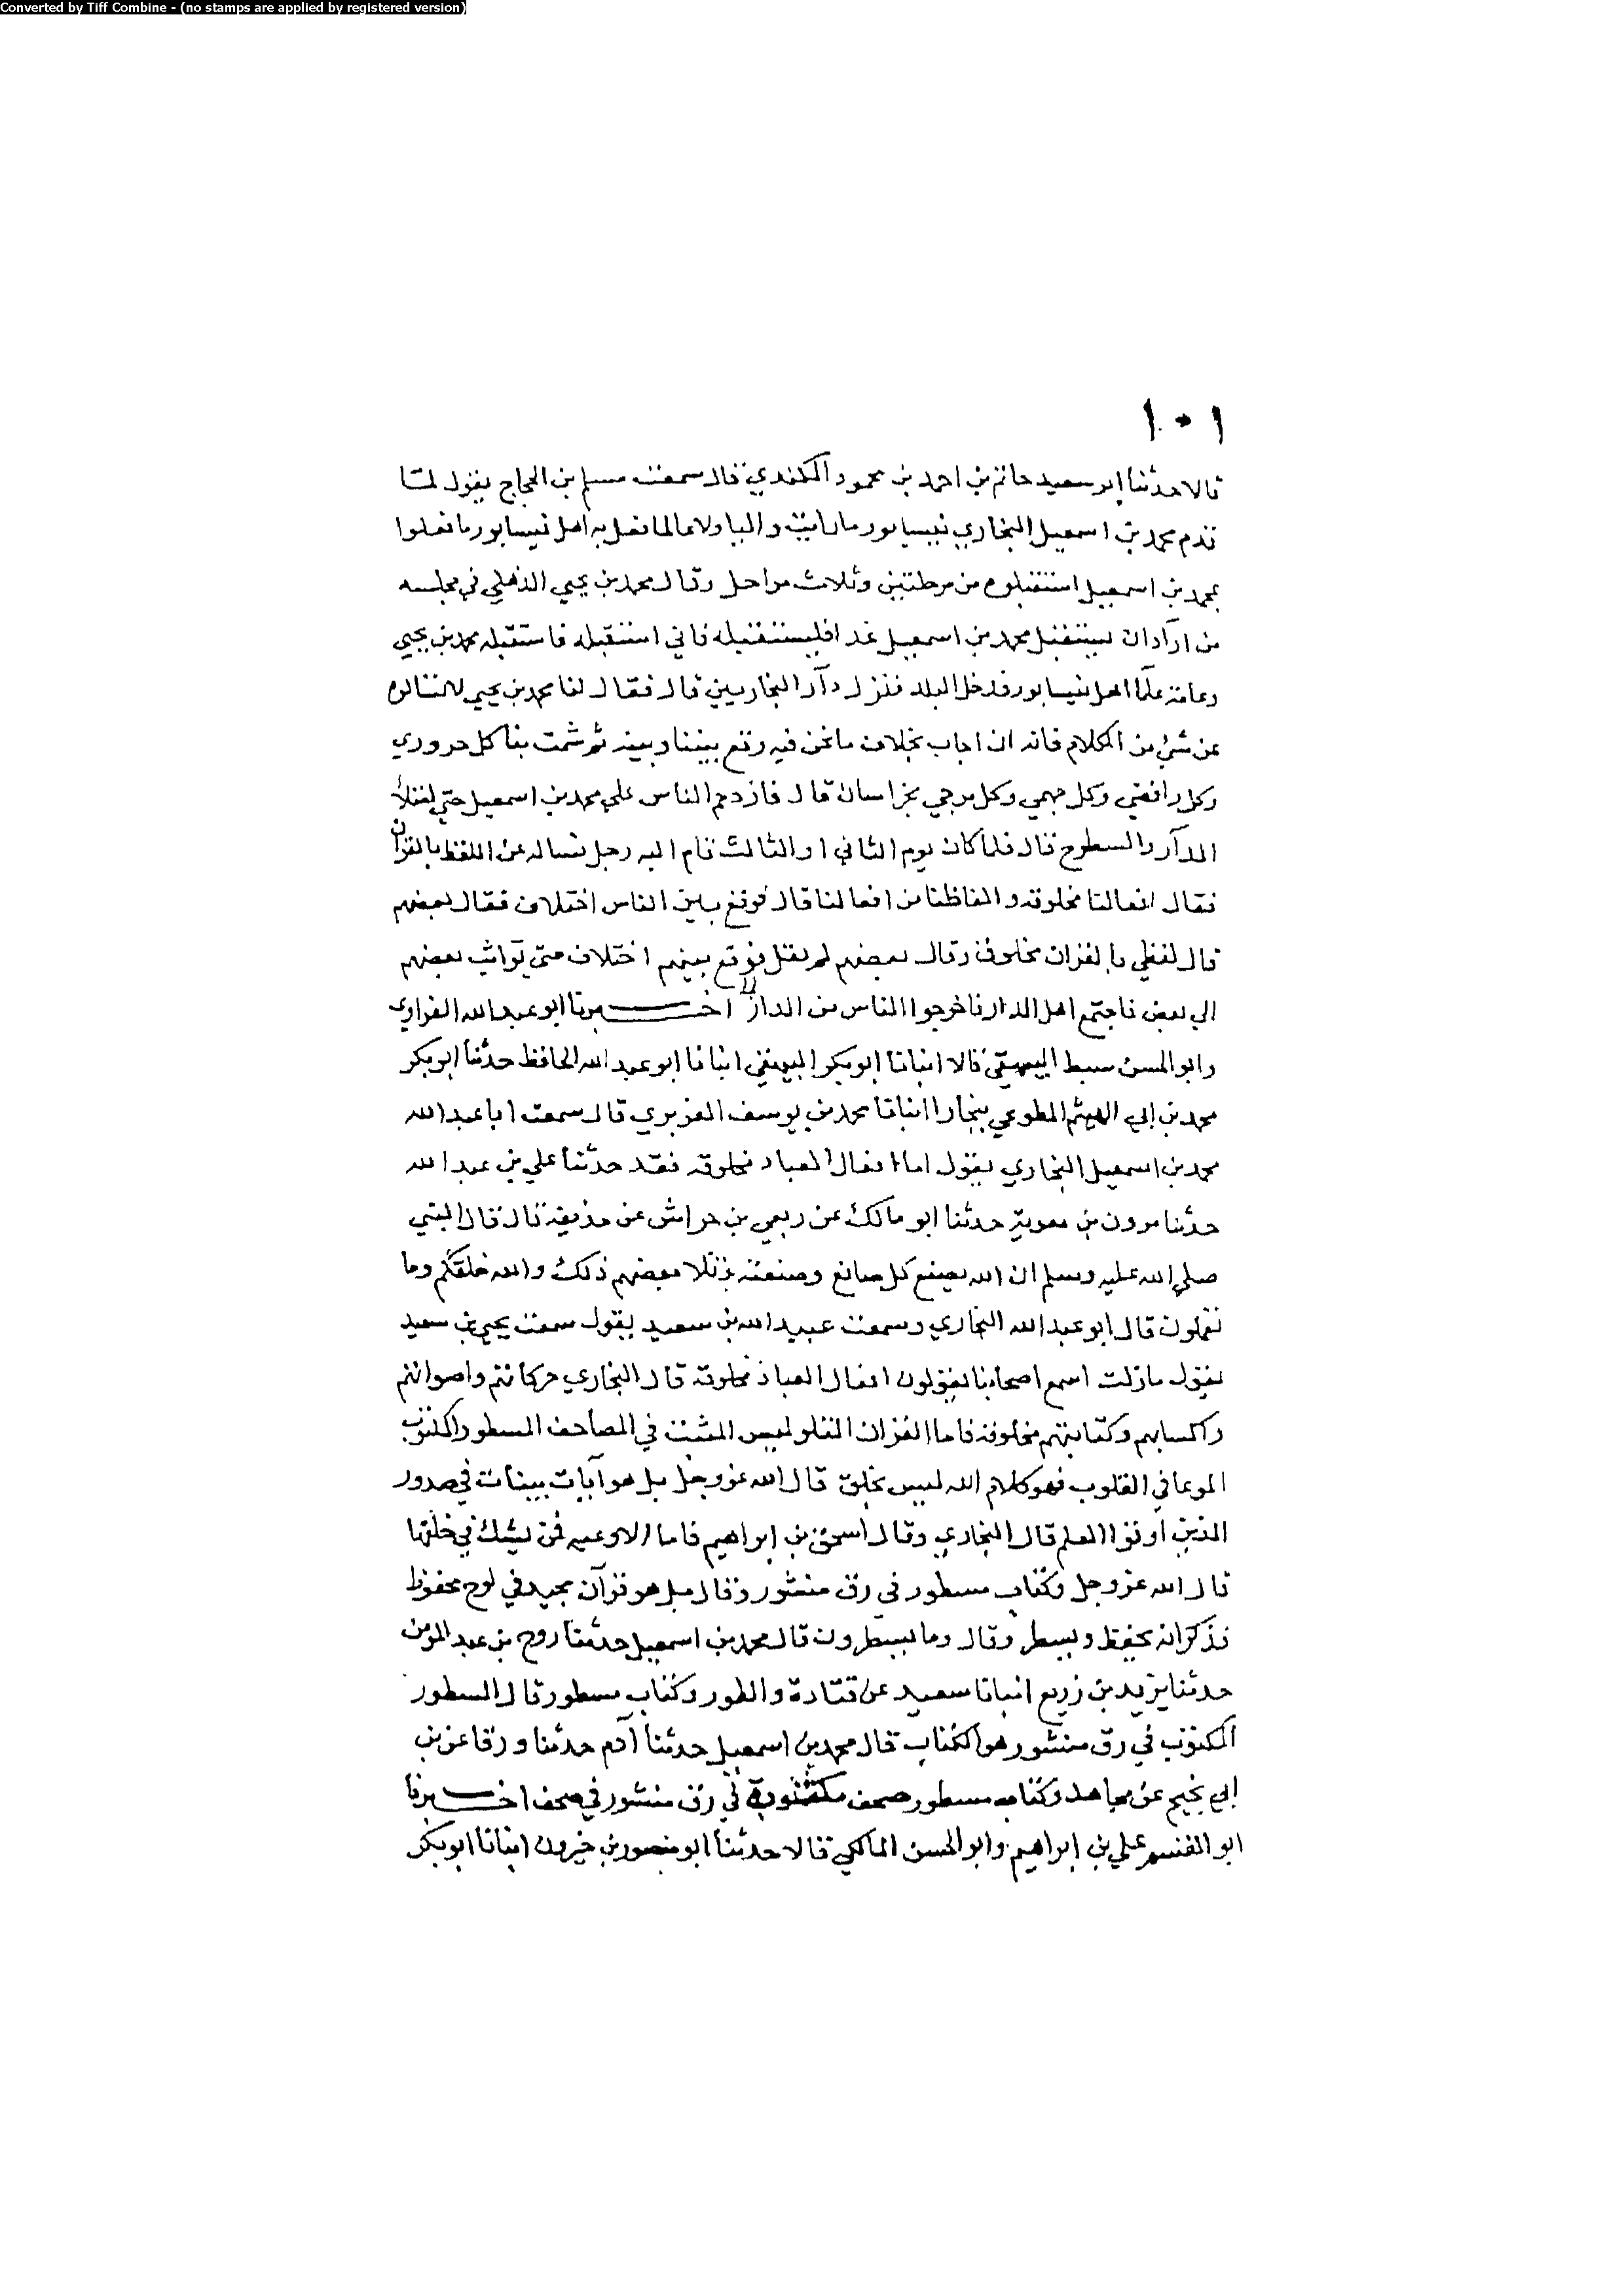 Converted by Tiff Combine - (no stamps are applied by registered version)
١٠١
قالا حدثنا ابو سعيد حاتم بن احمد بن محمود الكندي قال سمعت مسلم بن الحجاج يقول لما
قدم محمد بن اسمعيل البخاري نيسابور ما رايت واليا ولا عالما فعل به اهل نيسابور ما فعلوا
بمحمد بن اسمعيل استقبلوه من مرحلتين وثلاث مراحل وقال محمد بن يحيي الذهلي في مجلسه
من اراد ان يستقبل محمد بن اسمعيل غدا فليستقبله فاني استقبله فاستقبله محمد بن يحيي
وعامة علما اهل نيسابور فدخل البلد فنزل دار البخاريين قال فقال لنا محمد بن يحيي لا تسالوه
عن شئ من الكلام فانه ان اجاب بخلاف ما نحن فيه وقع بيننا وبينه ثم شمت بنا كل حروري
وكل رافضي وكل جهمي وكل مرجي بخراسان قال فازدحم الناس علي محمد بن اسمعيل حتي امتلأ
الدار والسطوح قال فلما كان يوم الثاني او الثالث قام اليه رجل فساله عن اللفظ بالقران
فقال افعالنا مخلوقة والفاظنا من افعالنا قال فوقع بين الناس اختلاف فقال بعضهم
قال لفظي بالقران مخلوق وقال بعضهم لم يقل فوقع بينهم اختلاف حتي تواثب بعضهم
الي بعض فاجتمع اهل الدار فاخرجوا الناس من الدار اخبرنا ابو عبد الله الفراوي
وابو الحسن سبط البيهقي قالا انبانا ابو بكر البيهقي انبانا ابو عبد الله الحافظ حدثنا ابو بكر
محمد بن ابي الهيثم المطوعي ببخارا انبانا محمد بن يوسف الفربري قال سمعت ابا عبد الله
محمد بن اسمعيل البخاري يقول اما افعال العباد مخلوقه فقد حدثنا علي بن عبد الله
حدثنا مرون بن معوية حدثنا ابو مالك عن ربعي بن حراش عن حذيفة قال قال النبي
صلي الله عليه وسلم ان الله يصنع كل صانع وصنعته وتلا بعضهم ذلك والله خلقكم وما
تعملون قال ابو عبد الله البخاري وسمعت عبيد الله بن سعيد يقول سمعت يحيي بن سعيد
يقول مازلت اسمع اصحابنا يقولون افعال العباد مخلوقة قال البخاري حركاتهم واصواتهم
واكسابهم وكتابتهم مخلوقة فاما القران المتلو المثبت في المصاحف المسطور المكتوب
الموعا في القلوب فهو كلام الله ليس بخلق قال الله عز وجل بل هو آيات بينات في صدور
الذين اوتوا العلم قال البخاري وقال اسحق بن ابراهيم فاما الاوعيه فمن يشك في خلقها
قال الله عز وجل وكتاب مسطور في رق منشور وقال بل هو قرآن مجيد في لوح محفوظ
فذكر انه يحفظ ويسطر وقال وما يسطرون قال محمد بن اسمعيل حدثنا روح بن عبد المومن
حدثنا يزيد بن زريع انبانا سعيد عن قتادة والطور وكتاب مسطور قال المسطور
المكتوب في رق منشور هو الكتاب قال محمد بن اسمعيل حدثنا آدم حدثنا ورقا عن بن
ابي نجيح عن مجاهد وكتاب مسطور صحف مكتوبة في رق منشور في صحف اخبرنا
ابو القسم علي بن ابراهيم وابو الحسن المالكي قالا حدثنا ابو منصور بن خيرون انبانا ابو بكر